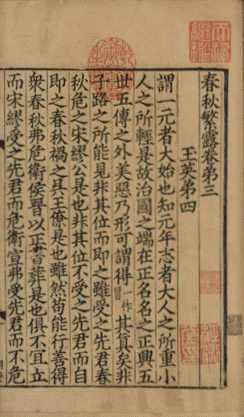 春秋繁露卷第三
王英第四
謂一元者大始也知元年志者大人之所重小
人之所輕是故治國之端在正名名之正興五
世五傳之外美惡乃形可謂得作其真矣非
子路之所能見非其位而即之雖受之先君春
秋危之宋繆公是也非其位不受之先君而自
即之春秋禍之吳王僚是也雖然苟能行善得
衆春秋弗危衛侯晉以正書葬是也俱不宜立
而宋繆受之先君而危衛宣弗受先君而不危